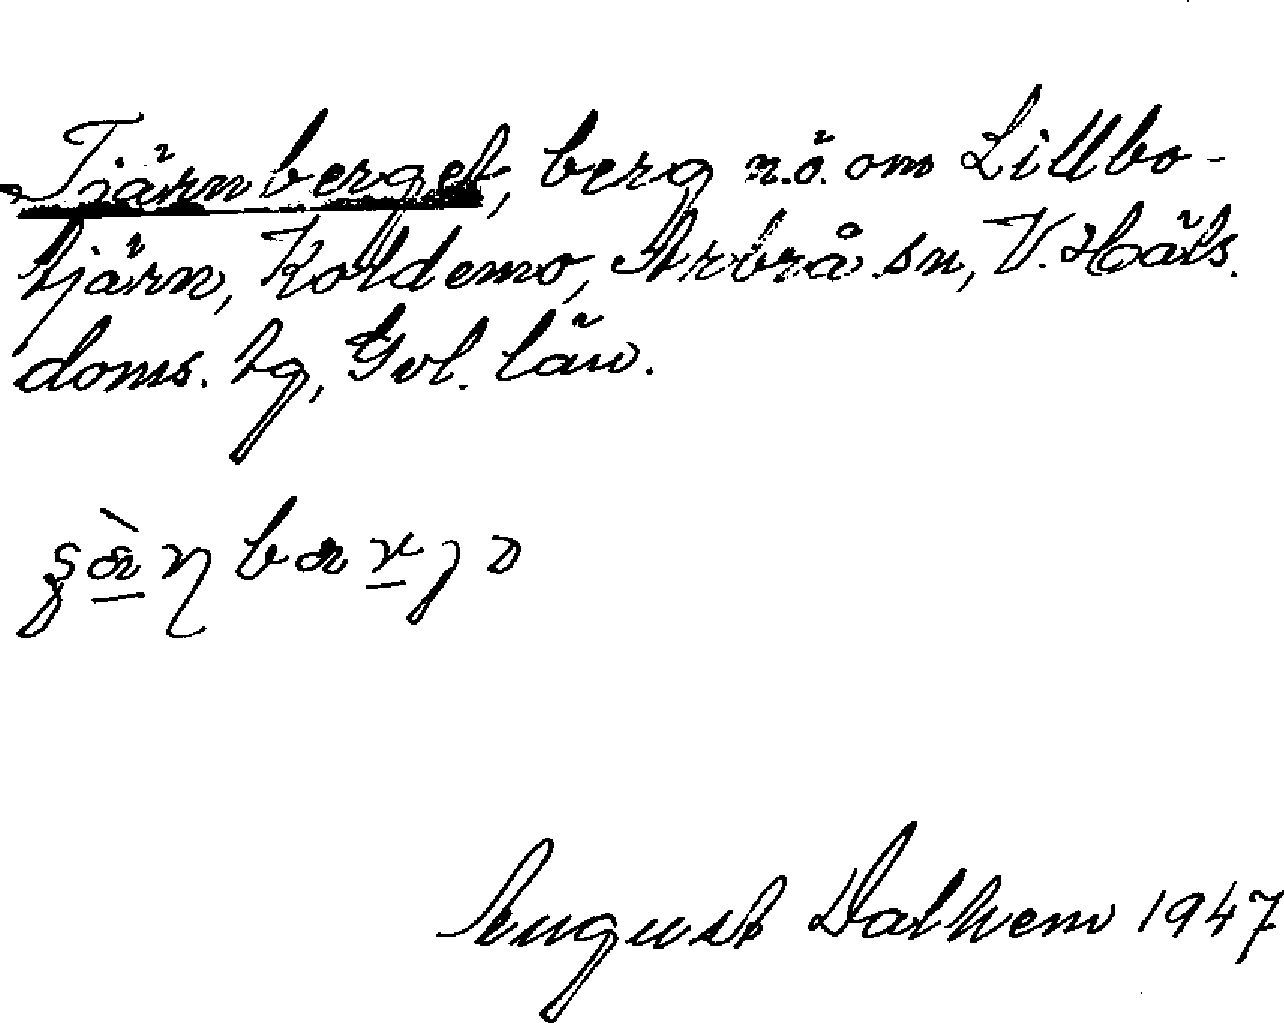 Tjärnberget, berg n.ö. om Lillbo-
tjärn, Koldemo, Arbrå sn, V. Häls.
doms. tg, Gvl. län.
August Dalhem 1947